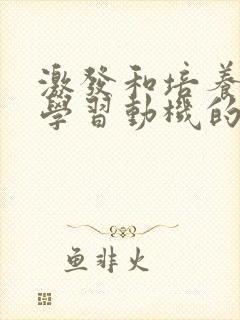 激發和培養
學習動機的
鱼非火